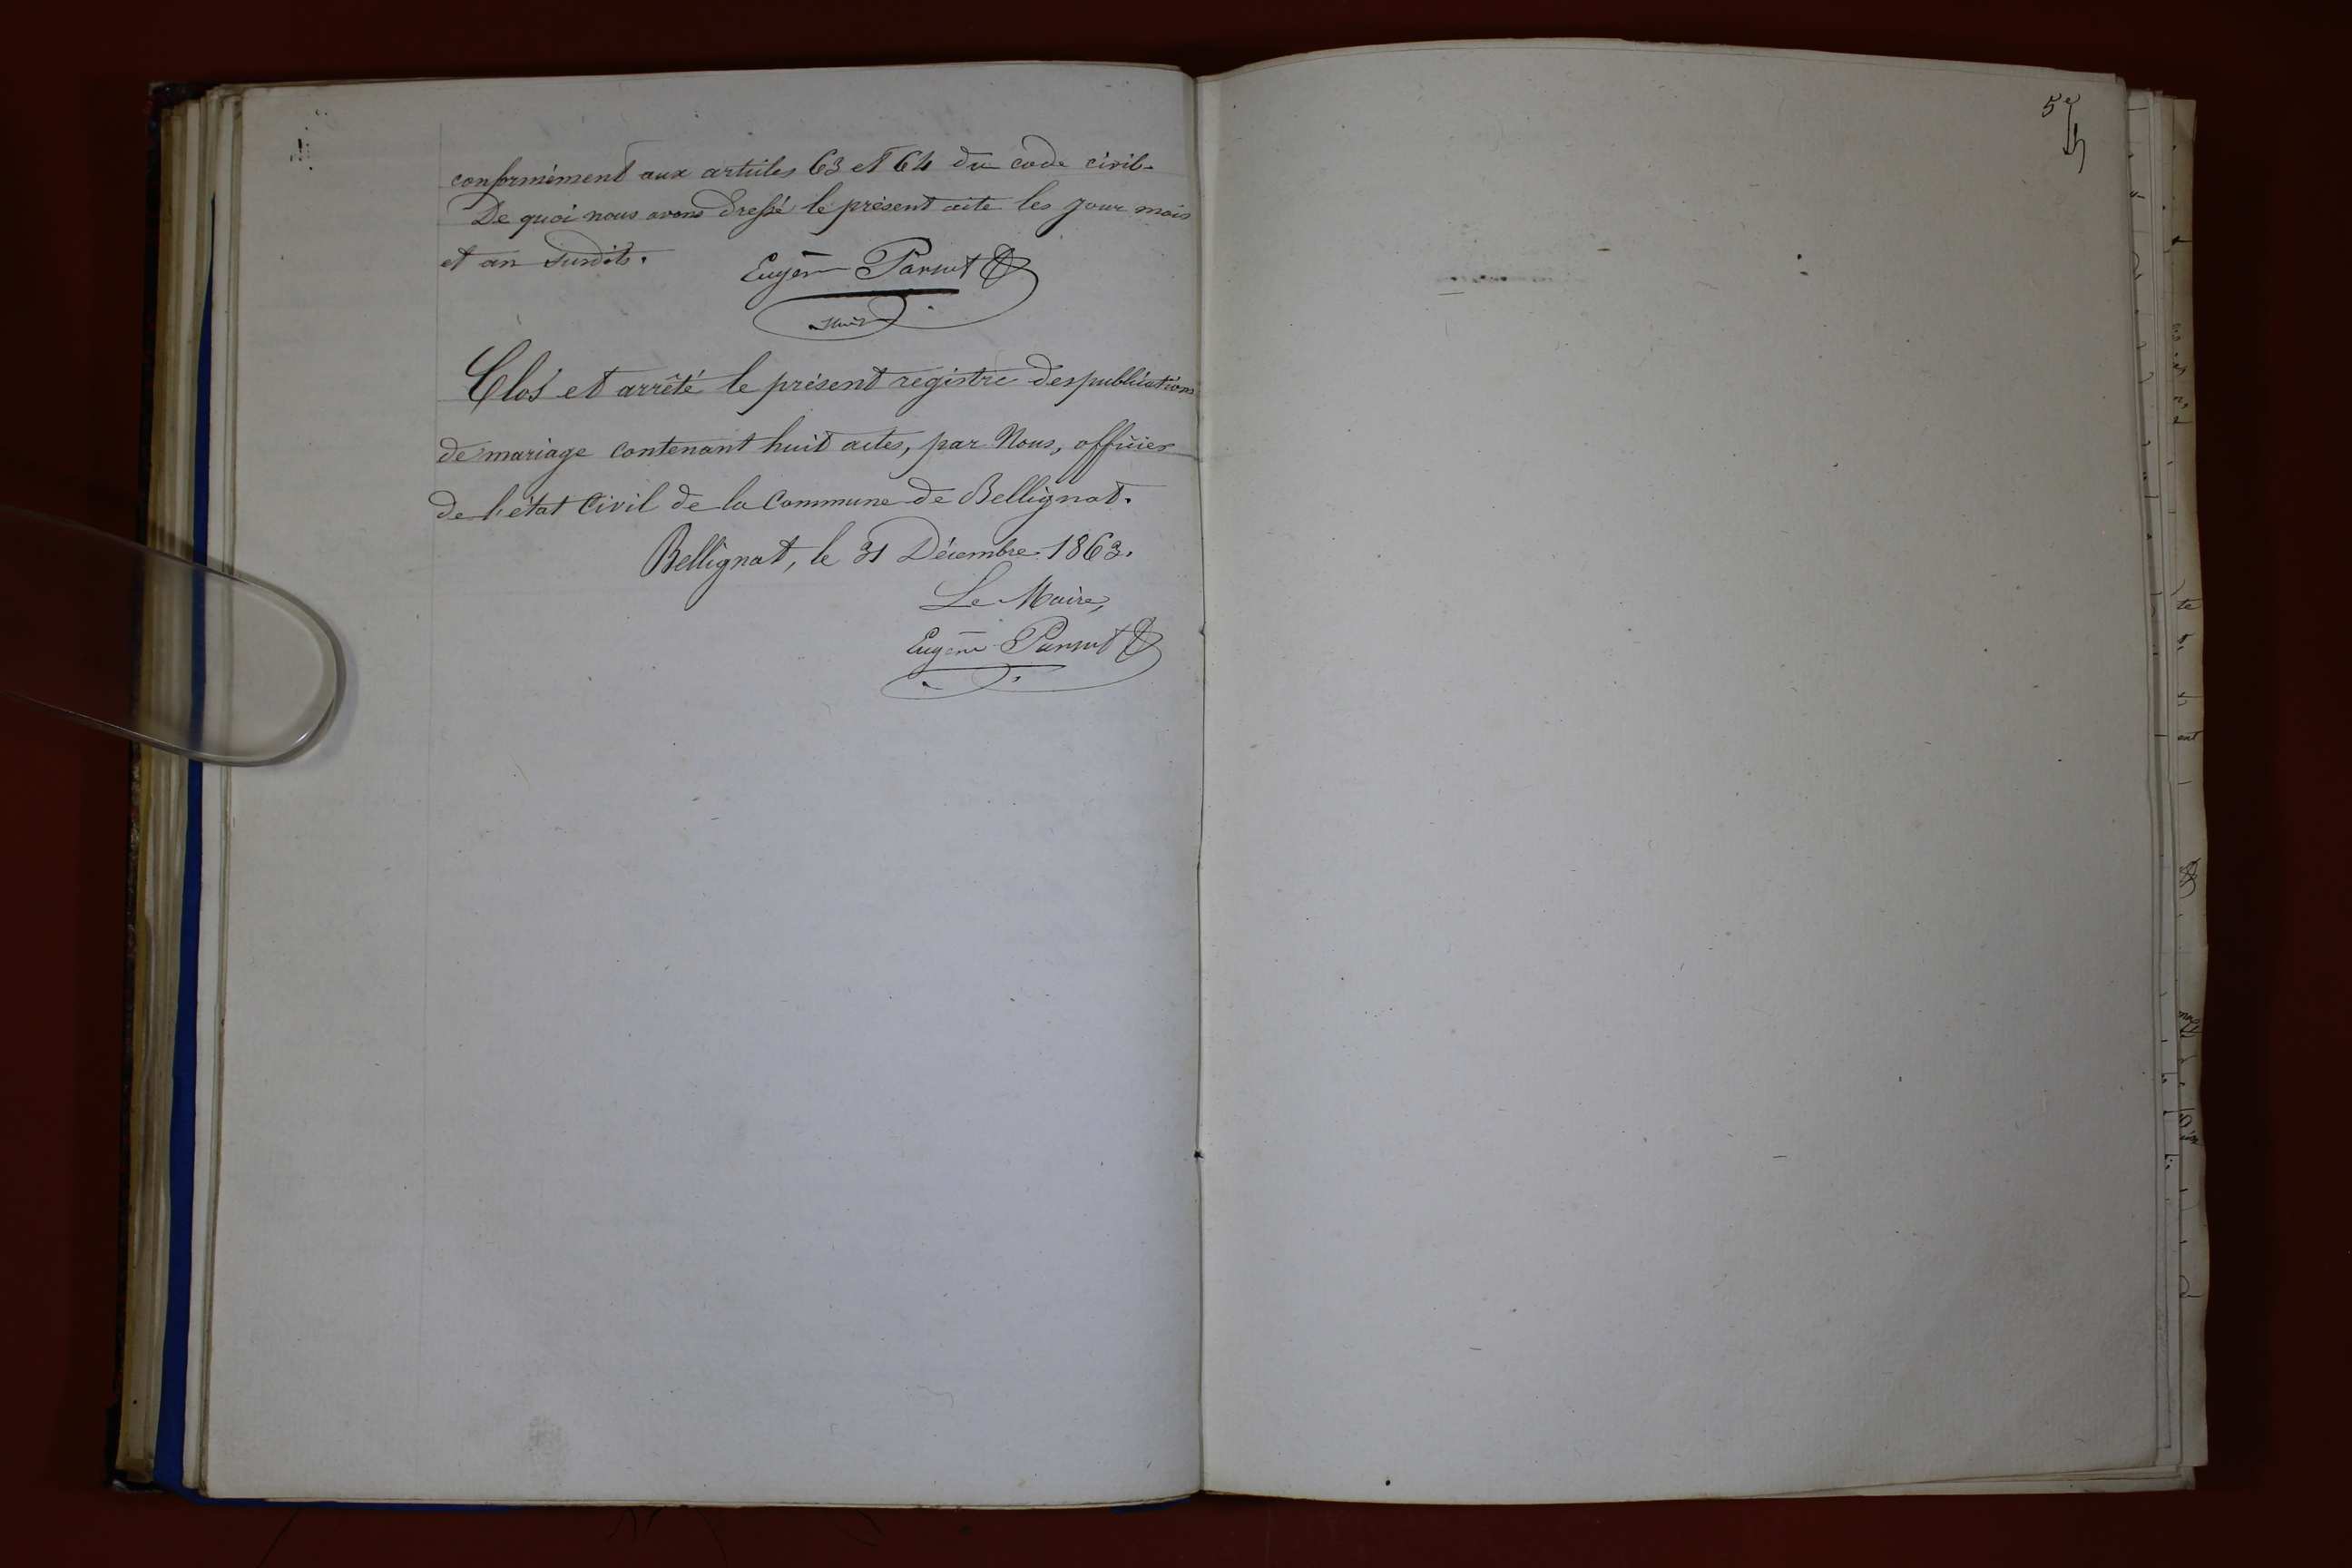 conformément aux articles 63 et 64 du code civil.
De quoi nous avons dressé le présent acte les jour mois
et an susdits.
Eugène
Clos et arrêté le présent registre des publications
de mariage contenant huit actes, par Nous, officier
de l'état Civil de la Commune de Bellignat.
Bellignat, le 31 Décembre 1863.
Le Maire,
Eugène
5e